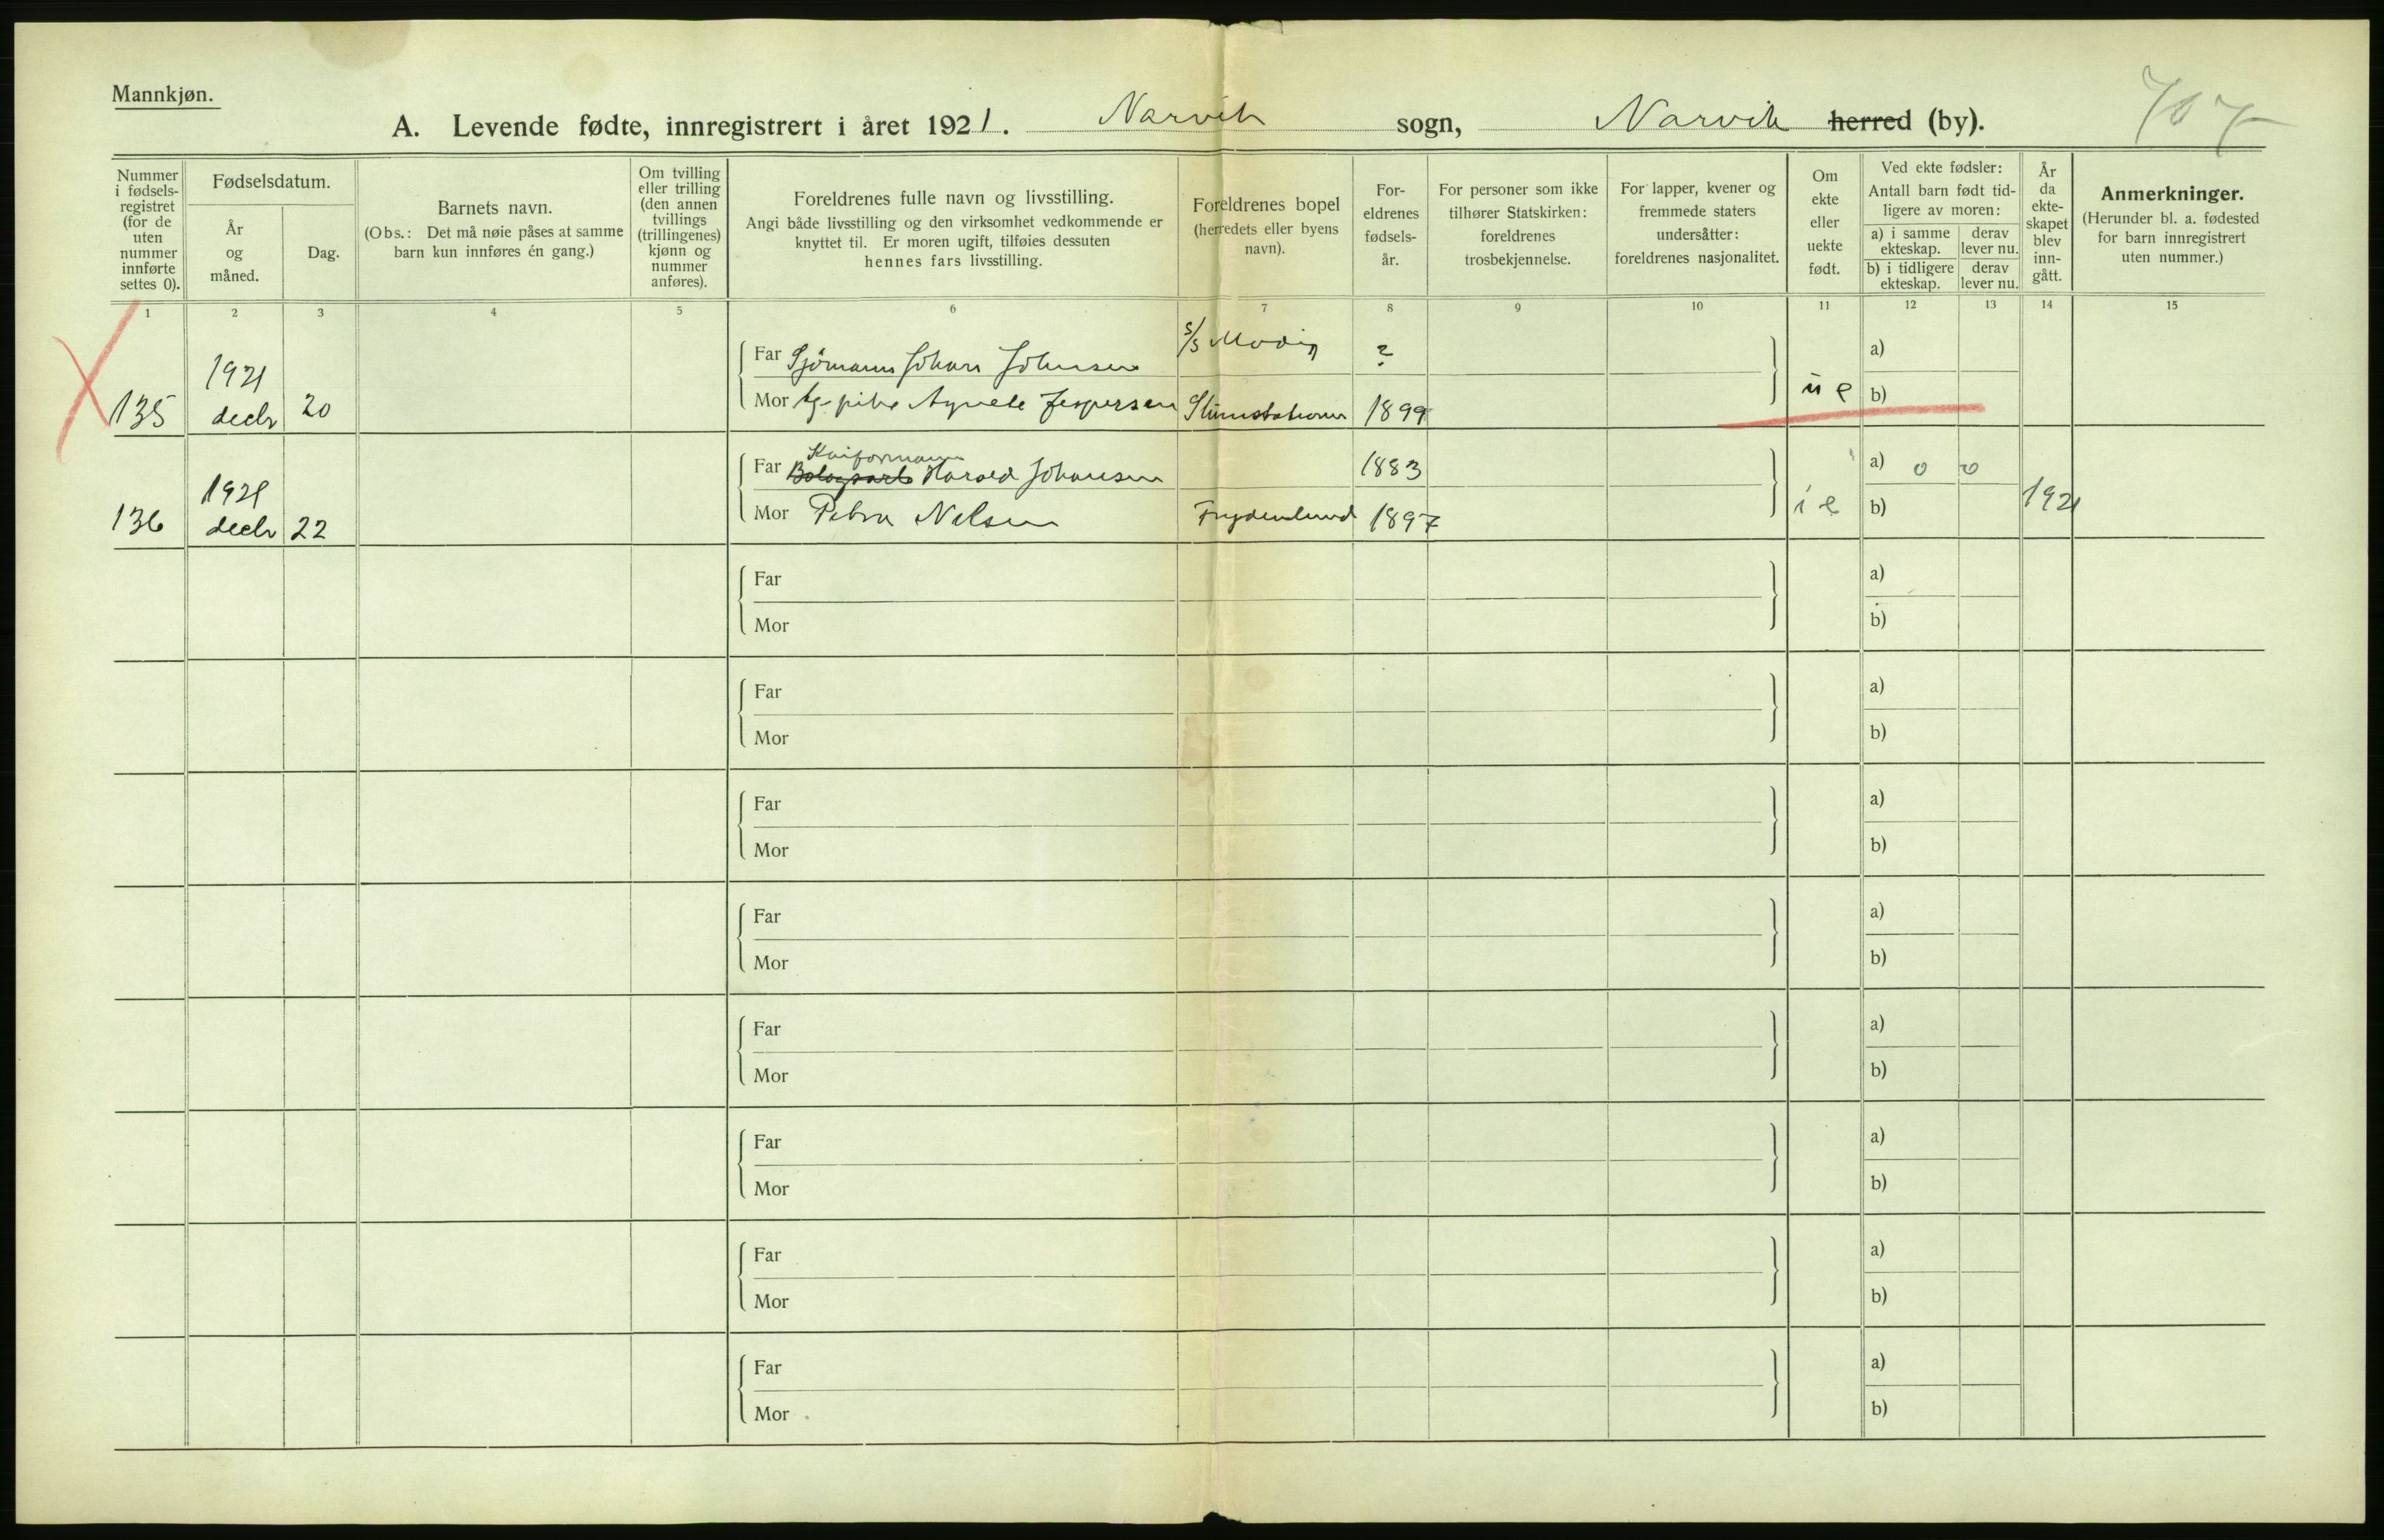 Mannkjøn.
A. Levende fødte, innregistrert i året 1921. Narvik sogn, Narvik herred (by). 707
Nummer i fødsels-registret (for de uten nummer innførte settes 0).
Fødselsdatum.
År og måned.
Dag.
Barnets navn.
(Obs.: Det må nøie påses at samme barn kun innføres én gang.)
Om tvilling eller trilling (den annen tvillings (trillingenes) kjønn og nummer anføres).
Foreldrenes fulle navn og livsstilling.
Angi både livsstilling og den virksomhet vedkommende er knyttet til. Er moren ugift, tilføies dessuten hennes fars livsstilling.
Foreldrenes bopel (herredets eller byens navn).
For-eldrenes fødsels-år.
For personer som ikke tilhører Statskirken: foreldrenes trosbekjennelse.
For lapper, kvener og fremmede staters undersåtter: foreldrenes nasjonalitet.
Om ekte eller uekte født.
Ved ekte fødsler:
Antall barn født tid-ligere av moren:
a) i samme ekteskap.
derav lever nu.
b) i tidligere ekteskap.
derav lever nu.
År da ekte-skapet blev inn-gått.
Anmerkninger.
(Herunder bl. a. fødested for barn innregistrert uten nummer.)
1 2 3 4 5 6 7 8 9 10 11 12 13 14 15
Far Sjömann Johan Johnsen S/S Modig ? a)
135 1921 decbr 20 Mor Ug. pike Agnete Jespersen 1899 ue b)
Far Harald Johansen 1883 a) 0 0
136 1921 decbr 22 Mor Petra Nilsen Frydenlund 1897 ie b) 1921
Far a)
Mor b)
Far a)
Mor b)
Far a)
Mor b)
Far a)
Mor b)
Far a)
Mor b)
Far a)
Mor b)
Far a)
Mor b)
Far a)
Mor b)